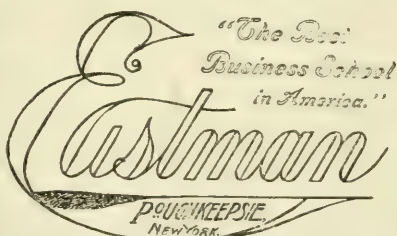 "The Best
Business School
in America."
Eastman
POUGHKEEPSIE,
NEW YORK.